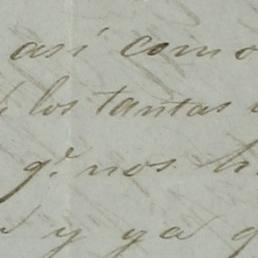 así como
los tantas
q.e nos
y ya